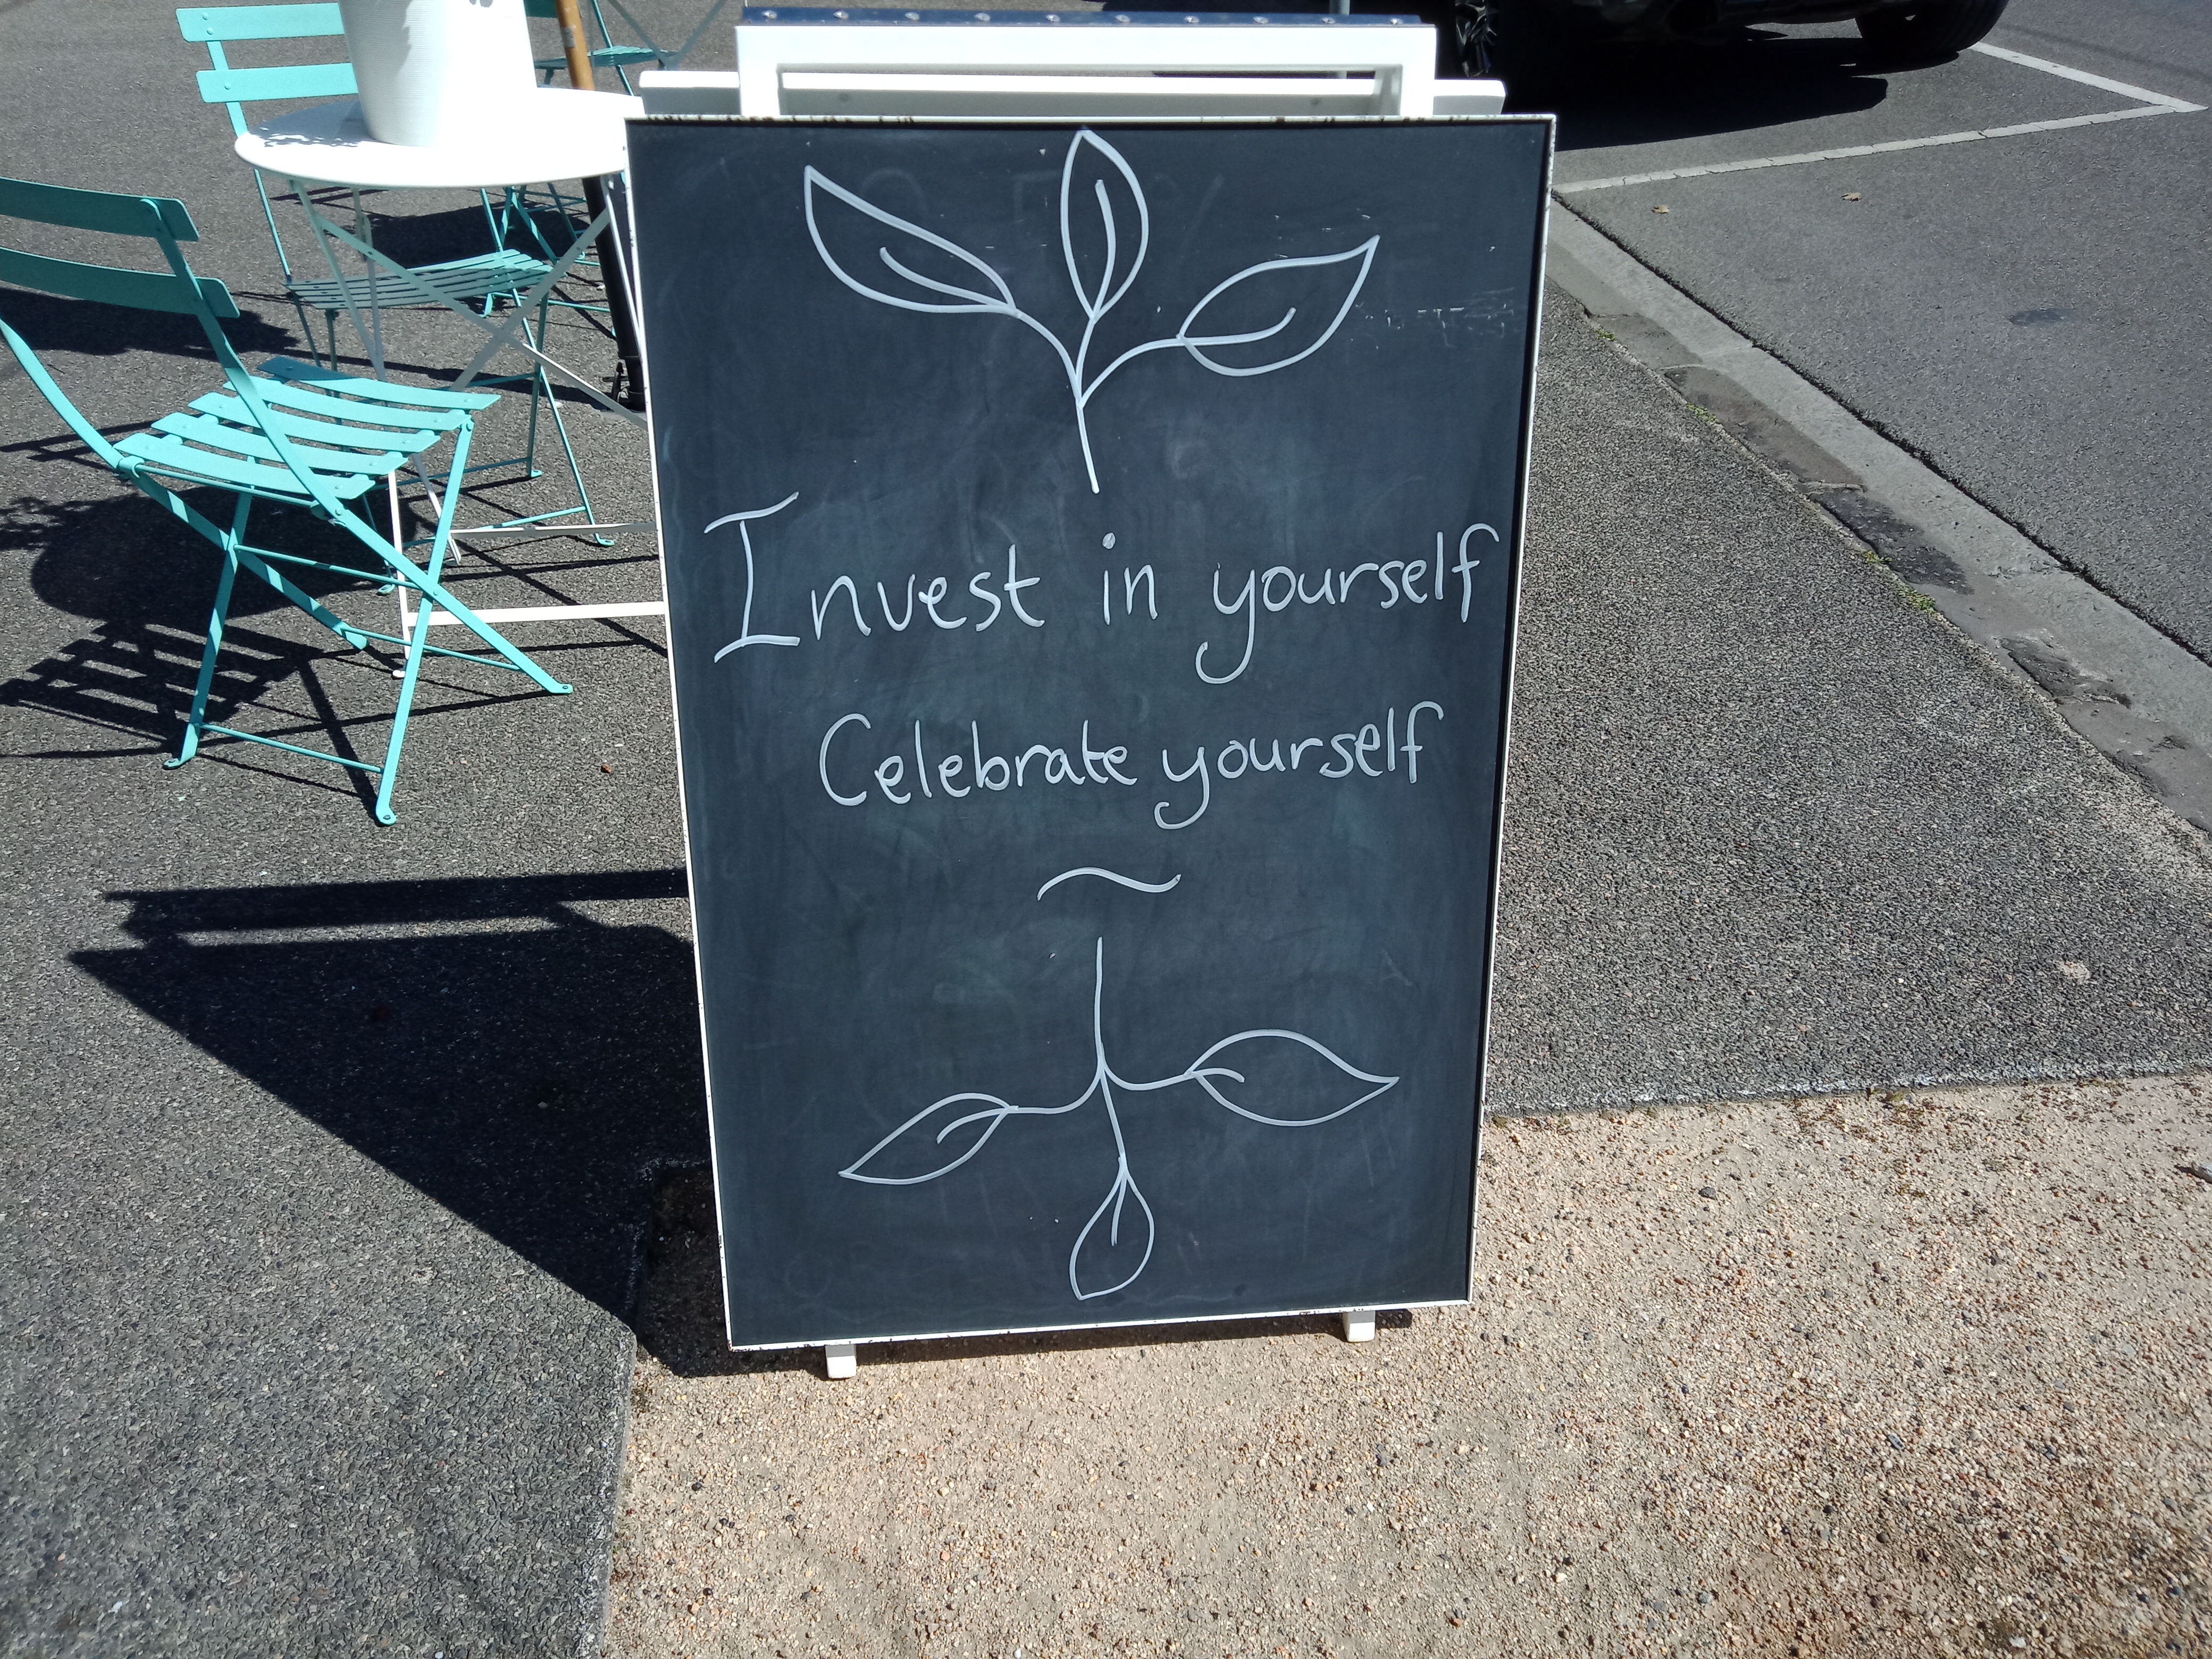 Invest in yourself
Celebrate yourself
~